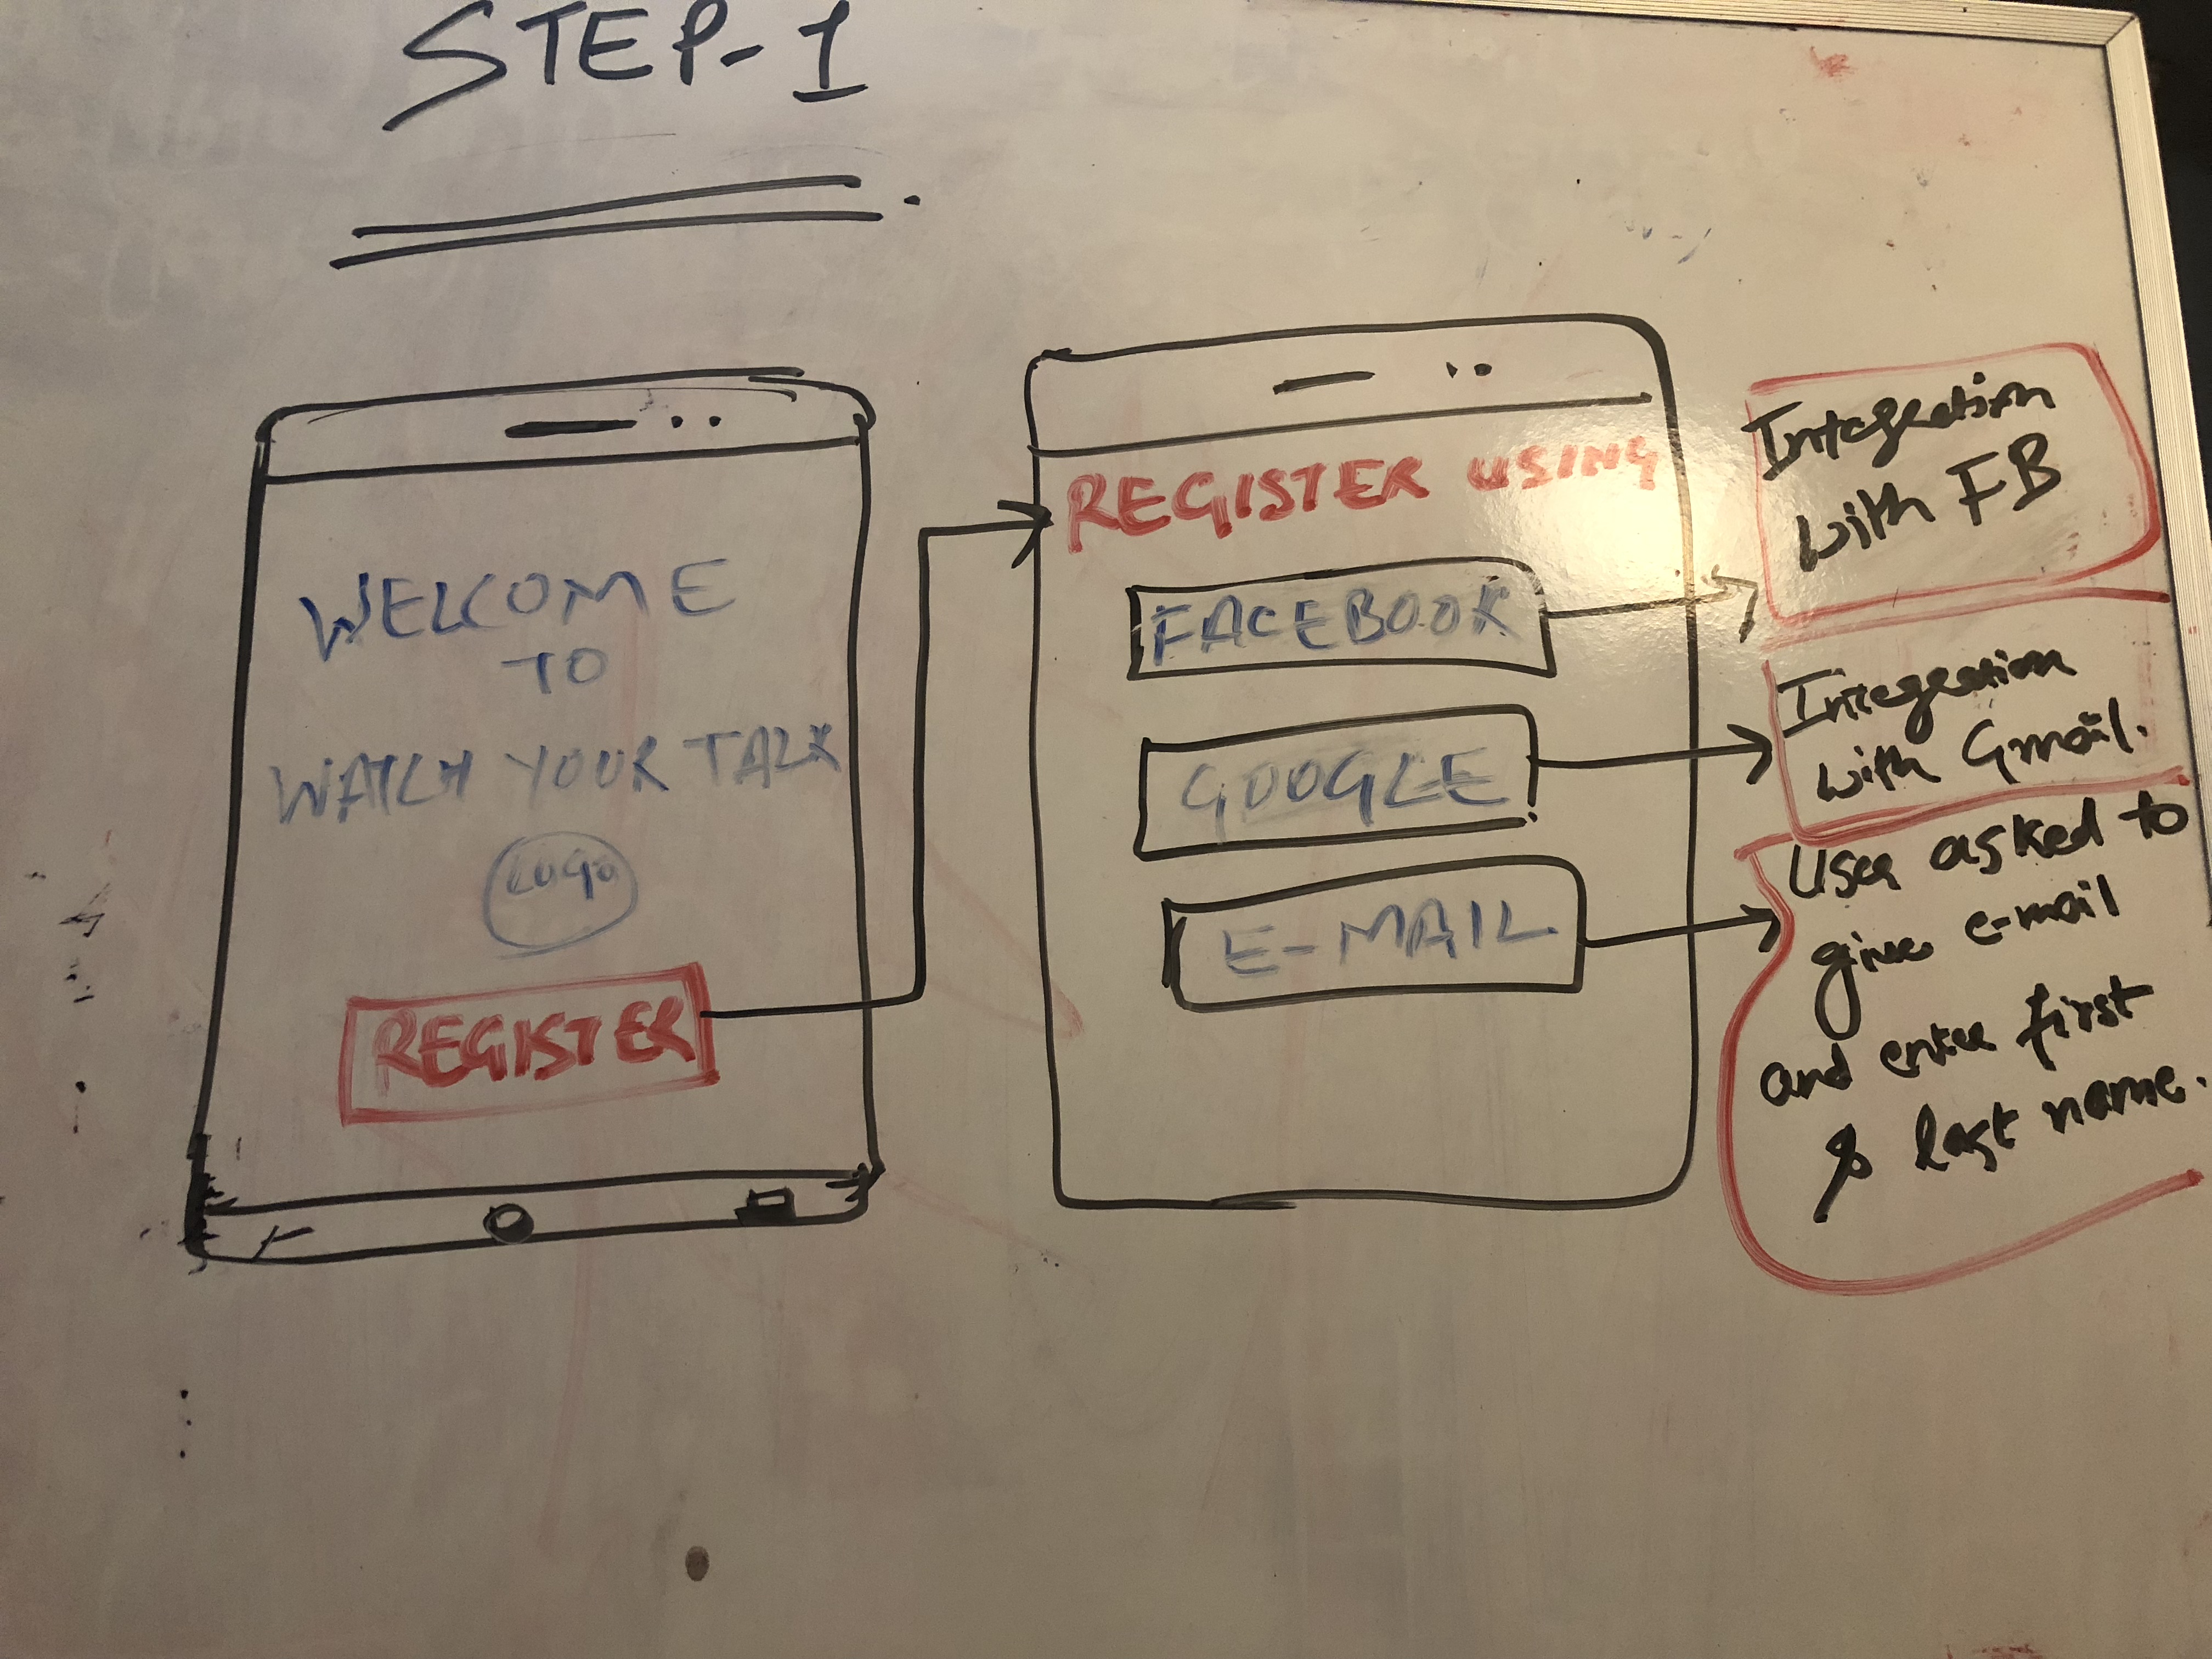 STEP-1
WELCOME
TO
WATCH YOUR TALK
LOGO
REGISTER
REGISTER USING
FACEBOOK
GOOGLE
E-MAIL
Integration
with FB
Integration
with Gmail.
User asked to
give e-mail
and enter first
& last name.